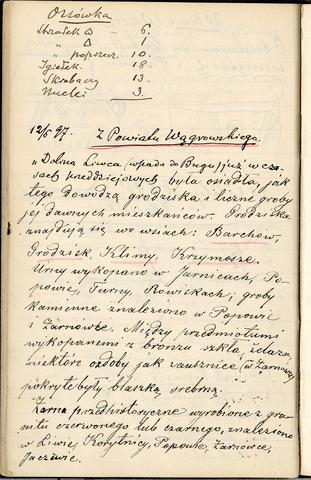 Orsówka
Strzałek △ – 6.
„ △ 1
„ poprzecz. 10.
Igiełek. – 18.
Skrobaczy 13.
Nucki 3.
12/5 97. Z Powiatu Węgrowskiego.
„Dolina Liwca (wpada do Bugu) już w cza-
sach przeddziejowych była osiadła, jak
tego dowodzą grodziska i liczne groby
jej dawnych mieszkańców. Grodziska
znajdują się we wsiach: Barchów,
Grodzisk, Klimy, Krzymosze.
Urny wykopano w Jarnicach, Po-
powie, Turny, Rowiskach; groby
kamienne znaleziono w Popowie
i Żarnówce. Między przedmiotami
wykopanemi z bronzu szkła, żelaza,
niektóre ozdoby jak zausznice (w Żarnówce)
pokryte były blaszką srebrną.
Żarna przedhistoryczne wyrobione z gra-
nitu czerwonego lub czarnego, znaleziono
w Liwie, Korytnicy, Popowie, Żarnówce,
Jaczewie.